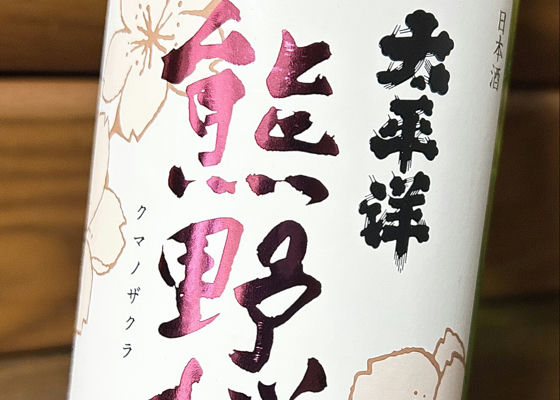 日本酒
太平洋
熊野桜
クマノザクラ